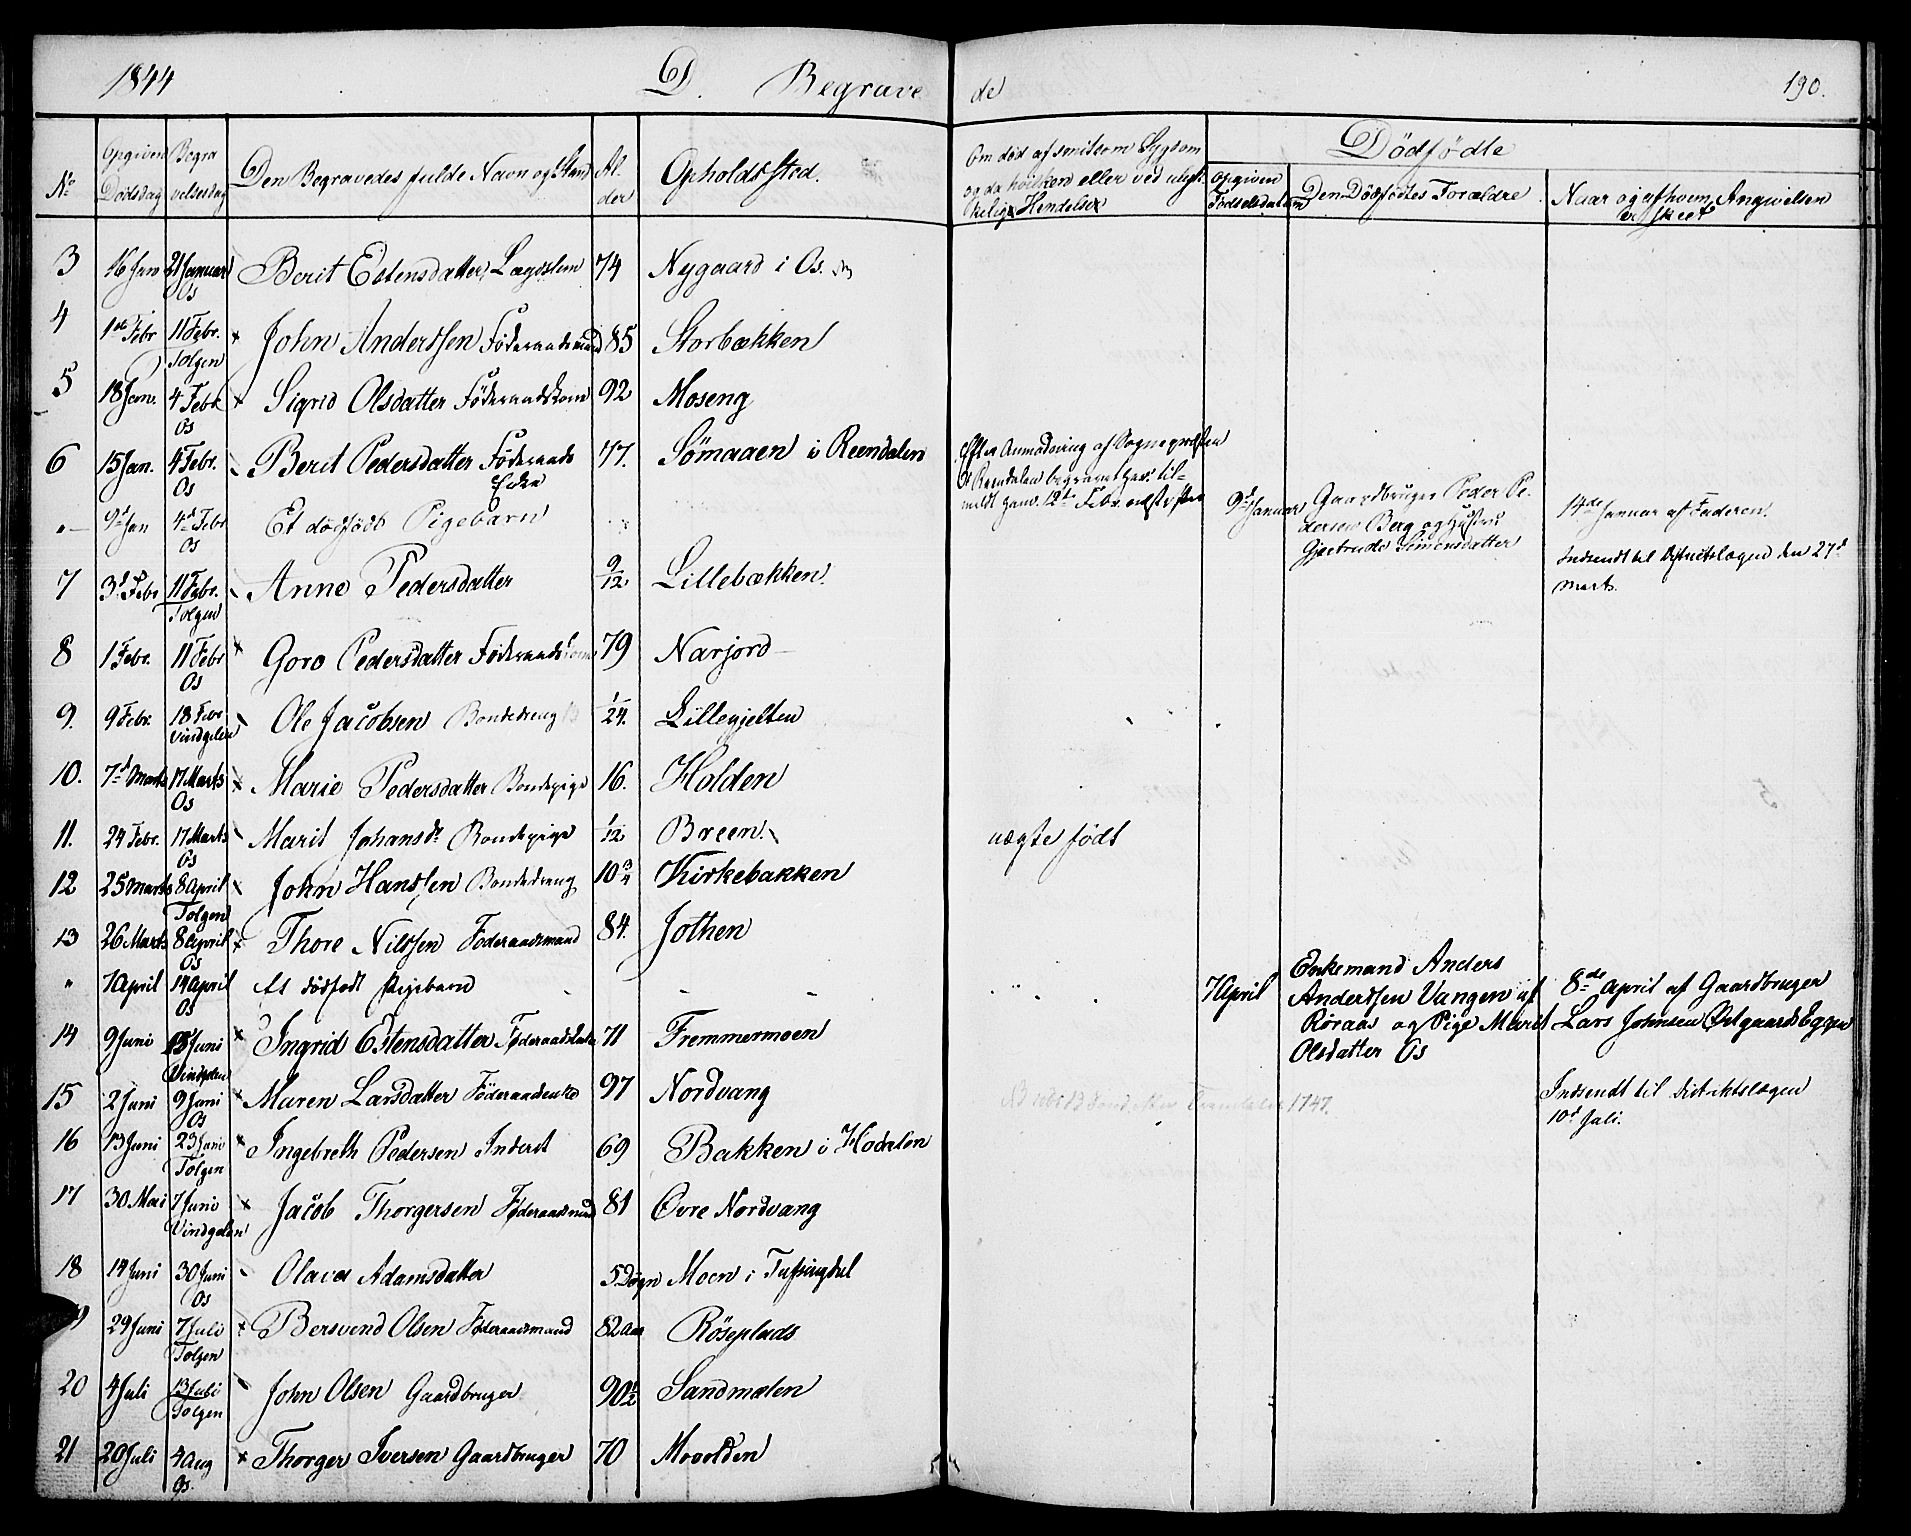 1844 D. Begrave de 190.
No Opgiven Dødsdag Begravelsesdag Den Begravedes fulde Navn og Stand Alder Opholdssted. Om død af smitsom Sygdom og da hvilken eller ved ulykkelig Hendelse Dödfödte
opgiven Fødselsdatum Den Dödfödtes Forældre Naar og af hvem Angivelsen er skeet
3 16 Jan 21 Januar Os Berit Estensdatter Lægdslem 74 Nygaard i Os.
4 1ste Febr 11 Febr. Tolgen John Anderssen Föderaadsmand 85 Storbækken
5 18 Jan. 4 Febr. Os Sigrid Olsdatter Föderaadskone 92 Moseng
6 15 Jan. 4 Febr. Os Berit Pedersdatter Föderaads Enke 77. Sömaaen i Reendalen Efter Anmodning af Sognepræsten
i Reendalen begravet her. til-
meldt ham 12te Febr. næstefter
"— 9d Jan 4d Febr Os Et dödfödt Pigebarn 9d Januar Gaardbruger Peder Pe-
dersen Berg og Hustru
Gjertrude Simensdatter
14de Januar af Faderen.
Indsendt til Distriktslægen den 27d
Marts.
7 3d Febr 11 Febr. Tolgen Anne Pedersdatter 9/12 Lillebækken.
8 1 Febr. 11 Febr Os Goro Pedersdatter Föderaadskone 79 Narjord
9. 9 Febr. 18 Febr Vindgelen Ole Jacobsen Bondedreng 1/24. Lillegjelten
10. 7d Marts 17 Marts Os Marie Pedersdatter Bondepige 16. Holden
11. 24 Febr. 17 Marts Os Marit Johansdr Bondepige 1/12 Bræen. uægte født
12 25 Marts 8 April Tolgen John Hanssen Bondedreng 10 3/4 Kirkebakken
13 26 Marts 8 April Os Thore Nilssen Föderaadsmand 84. Jothen
" 7 April 14 April Os Et dödfødt Pigebarn 7 April Enkemand Anders
Anderssen Vangen af
Røraas og Pige Marit
Olsdatter Os
8de April af Gaardbruger
Lars Johnsen Østgaards Eggen
Indsendt til Distriktslægen
10d Juli.
14 9 Juni Juni Vindgelen Ingrid Estensdatter Føderaads 71 Fremmermoen
15 2 Juni 9 Juni Os Maren Larsdatter Föderaadenke 97 Nordvang 1747.
16 13 Juni 23 Juni Tolgen Ingebreth Pedersen Inderst 69 Bakken i Hodalen
17 30 Mai 7 Juni Vindgelen Jacob Thorgersen Føderaadsmand 81 Øvre Nordvang
18 14 Juni 30 Juni Os Olava Adamsdatter 5 Døgn Moen i Tufsingdal
19 29 Juni 7 Juli Tolgen Bersvend Olsen Føderaadsmand 82 Aar Röseplads
20 4 Juli 13 Juli Tolgen John Olsen Gaardbruger 90 1/2 Sandmælen
21 20 Juli 4 Aug Os. Thorger Iversen Gaardbruger 70 Movolden